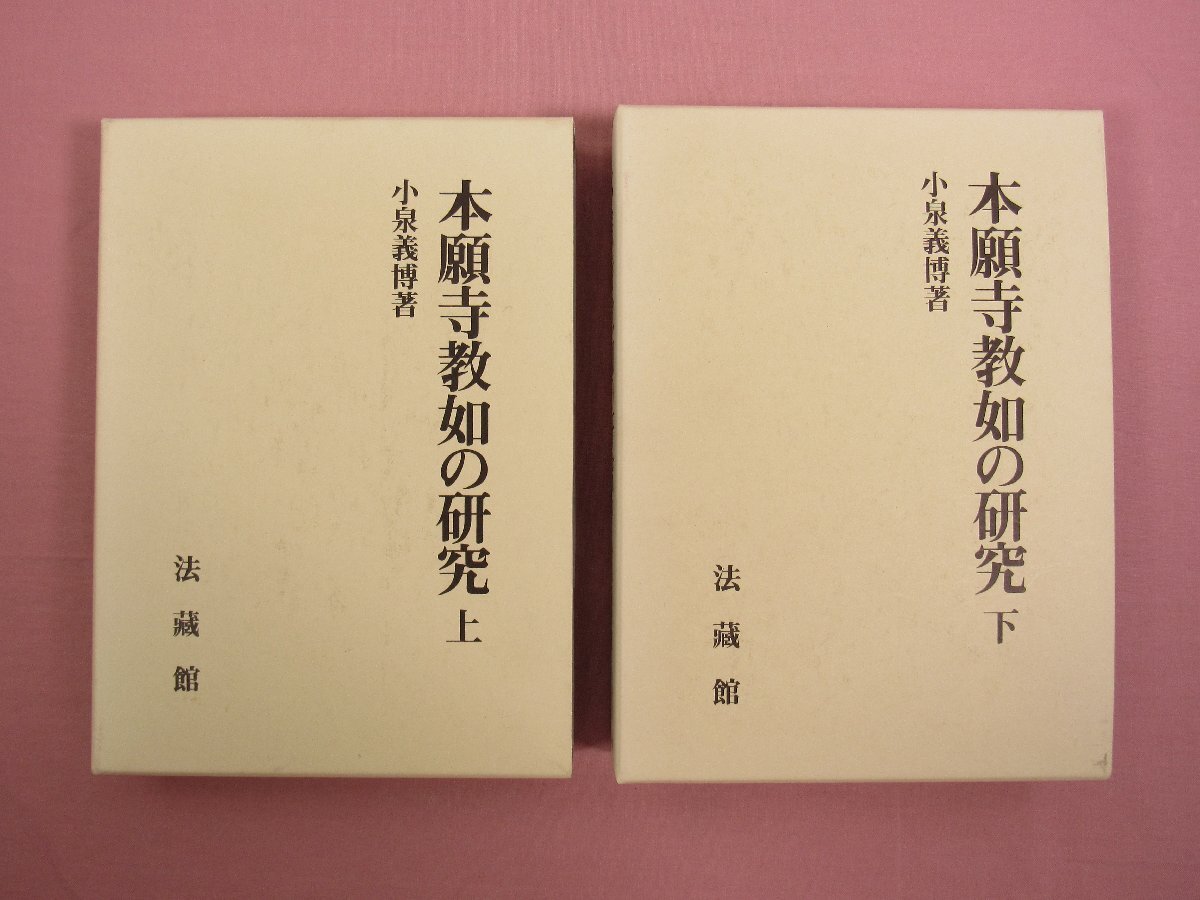 本願寺教如の研究 上
小泉義博著
法藏館
本願寺教如の研究 下
小泉義博著
法藏館